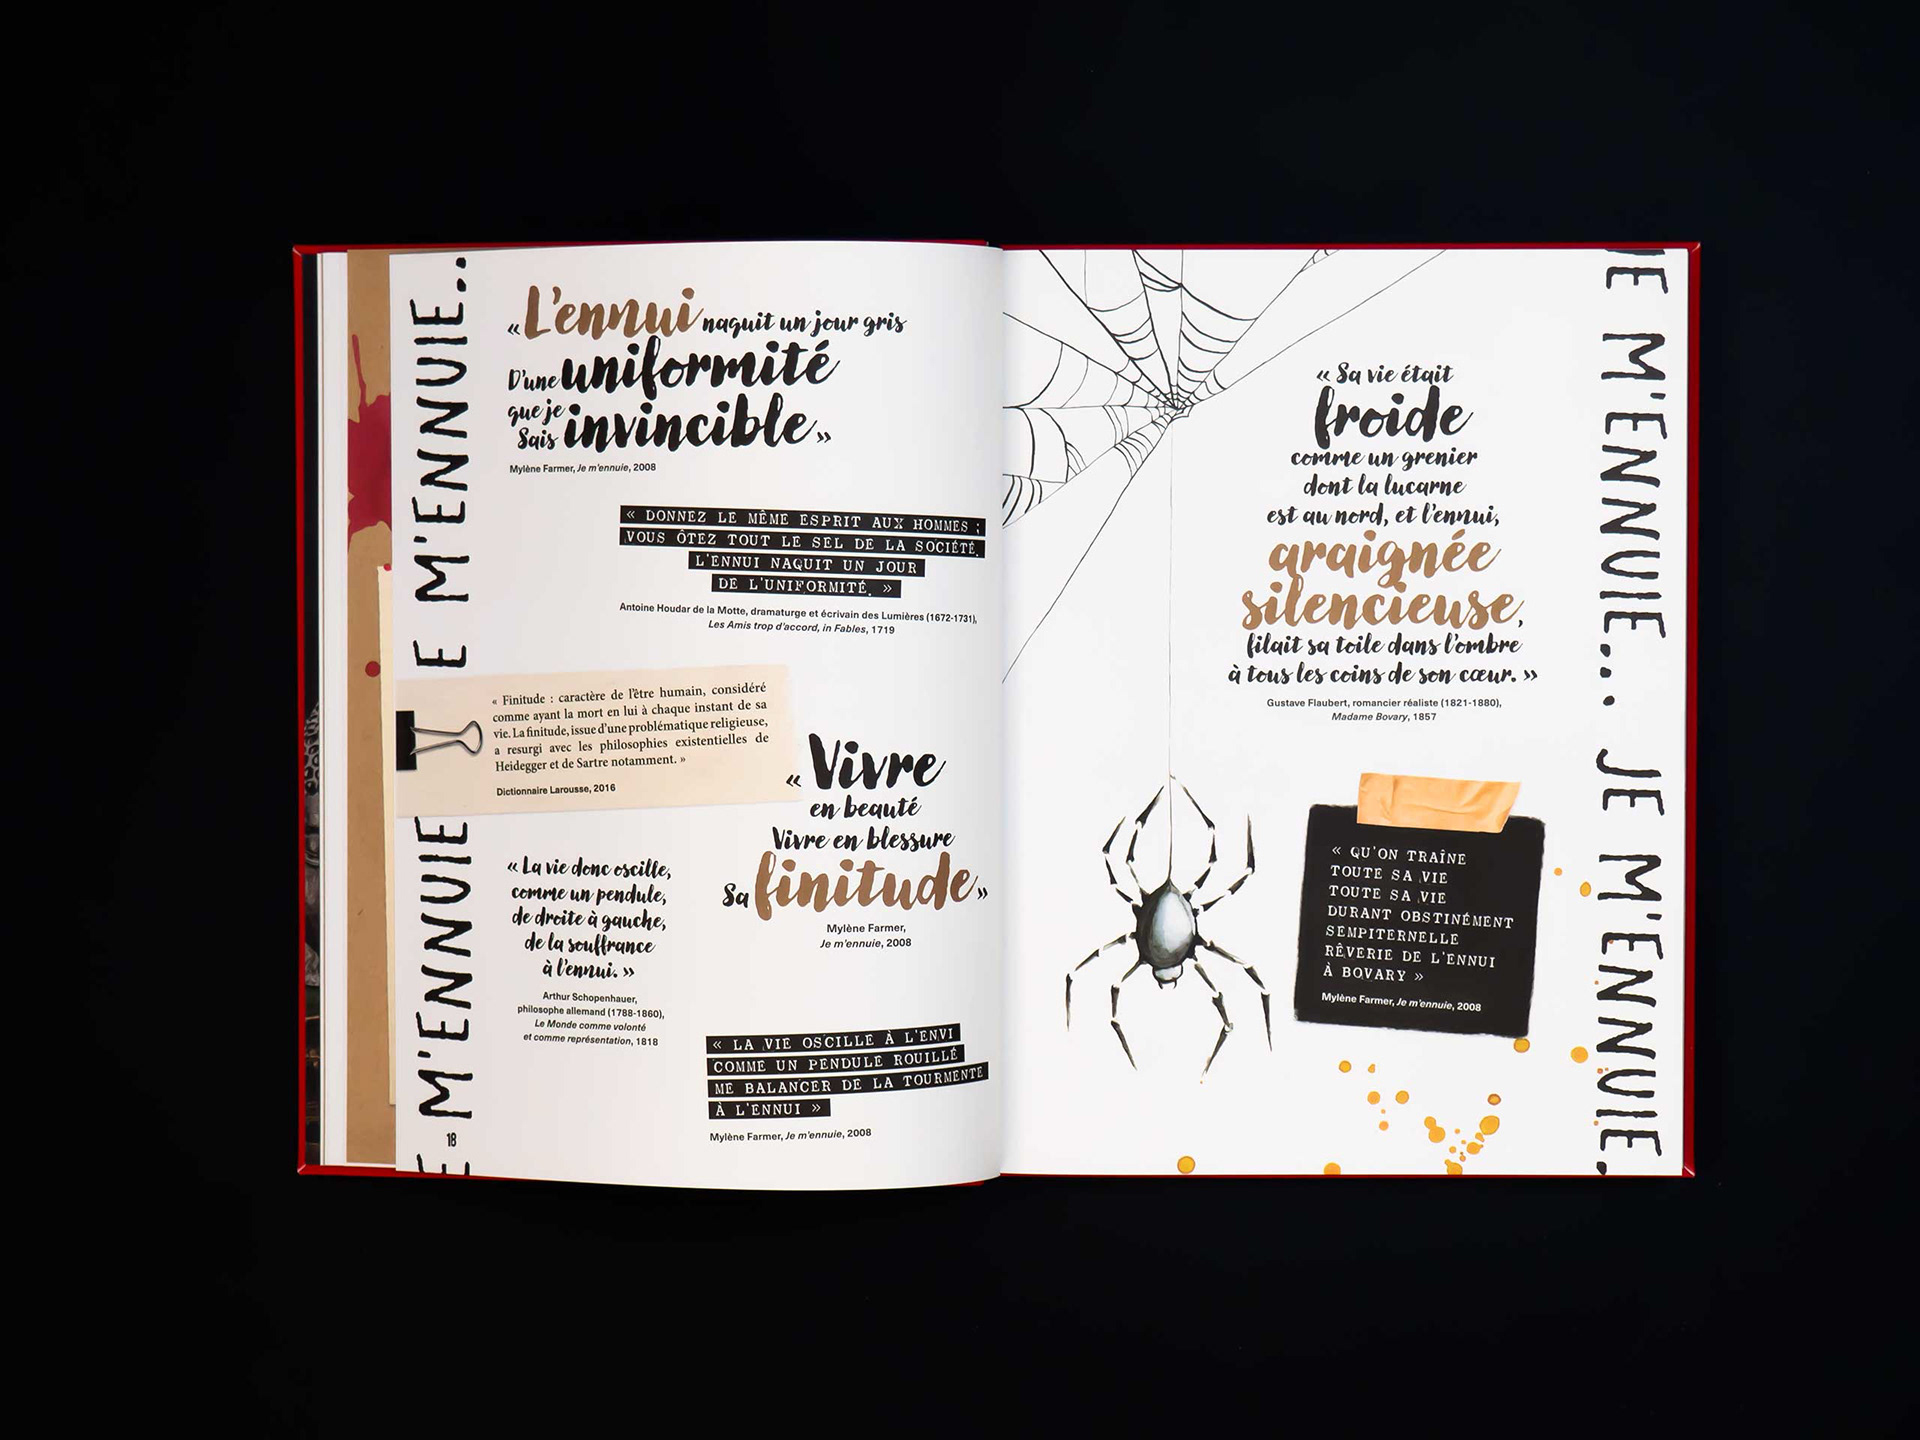 E M'ENNUIE..
E M'ENNUIE
« L'ennui naquit un jour gris
D'une uniformité
que je
Sais invincible »
Mylène Farmer, Je m'ennuie, 2008
« DONNEZ LE MÊME ESPRIT AUX HOMMES ;
VOUS ÔTEZ TOUT LE SEL DE LA SOCIÉTÉ.
L'ENNUI NAQUIT UN JOUR
DE L'UNIFORMITÉ. »
Antoine Houdar de la Motte, dramaturge et écrivain des Lumières (1672-1731),
Les Amis trop d'accord, in Fables, 1719
« Finitude : caractère de l'être humain, considéré
comme ayant la mort en lui à chaque instant de sa
vie. La finitude, issue d'une problématique religieuse,
a resurgi avec les philosophies existentielles de
Heidegger et de Sartre notamment. »
Dictionnaire Larousse, 2016
« Vivre
en beauté
Vivre en blessure
Sa finitude »
Mylène Farmer,
Je m'ennuie, 2008
« La vie donc oscille,
comme un pendule,
de droite à gauche,
de la souffrance
à l'ennui. »
Arthur Schopenhauer,
philosophe allemand (1788-1860),
Le Monde comme volonté
et comme représentation, 1818
« LA VIE OSCILLE À L'ENVI
COMME UN PENDULE ROUILLÉ
ME BALANCER DE LA TOURMENTE
À L'ENNUI »
Mylène Farmer, Je m'ennuie, 2008
18
« Sa vie était
froide
comme un grenier
dont la lucarne
est au nord, et l'ennui,
araignée
silencieuse,
filait sa toile dans l'ombre
à tous les coins de son cœur. »
Gustave Flaubert, romancier réaliste (1821-1880),
Madame Bovary, 1857
« QU'ON TRAÎNE
TOUTE SA VIE
TOUTE SA VIE
DURANT OBSTINÉMENT
SEMPITERNELLE
RÊVERIE DE L'ENNUI
À BOVARY »
Mylène Farmer, Je m'ennuie, 2008
JE M'ENNUIE... JE M'ENNUIE.